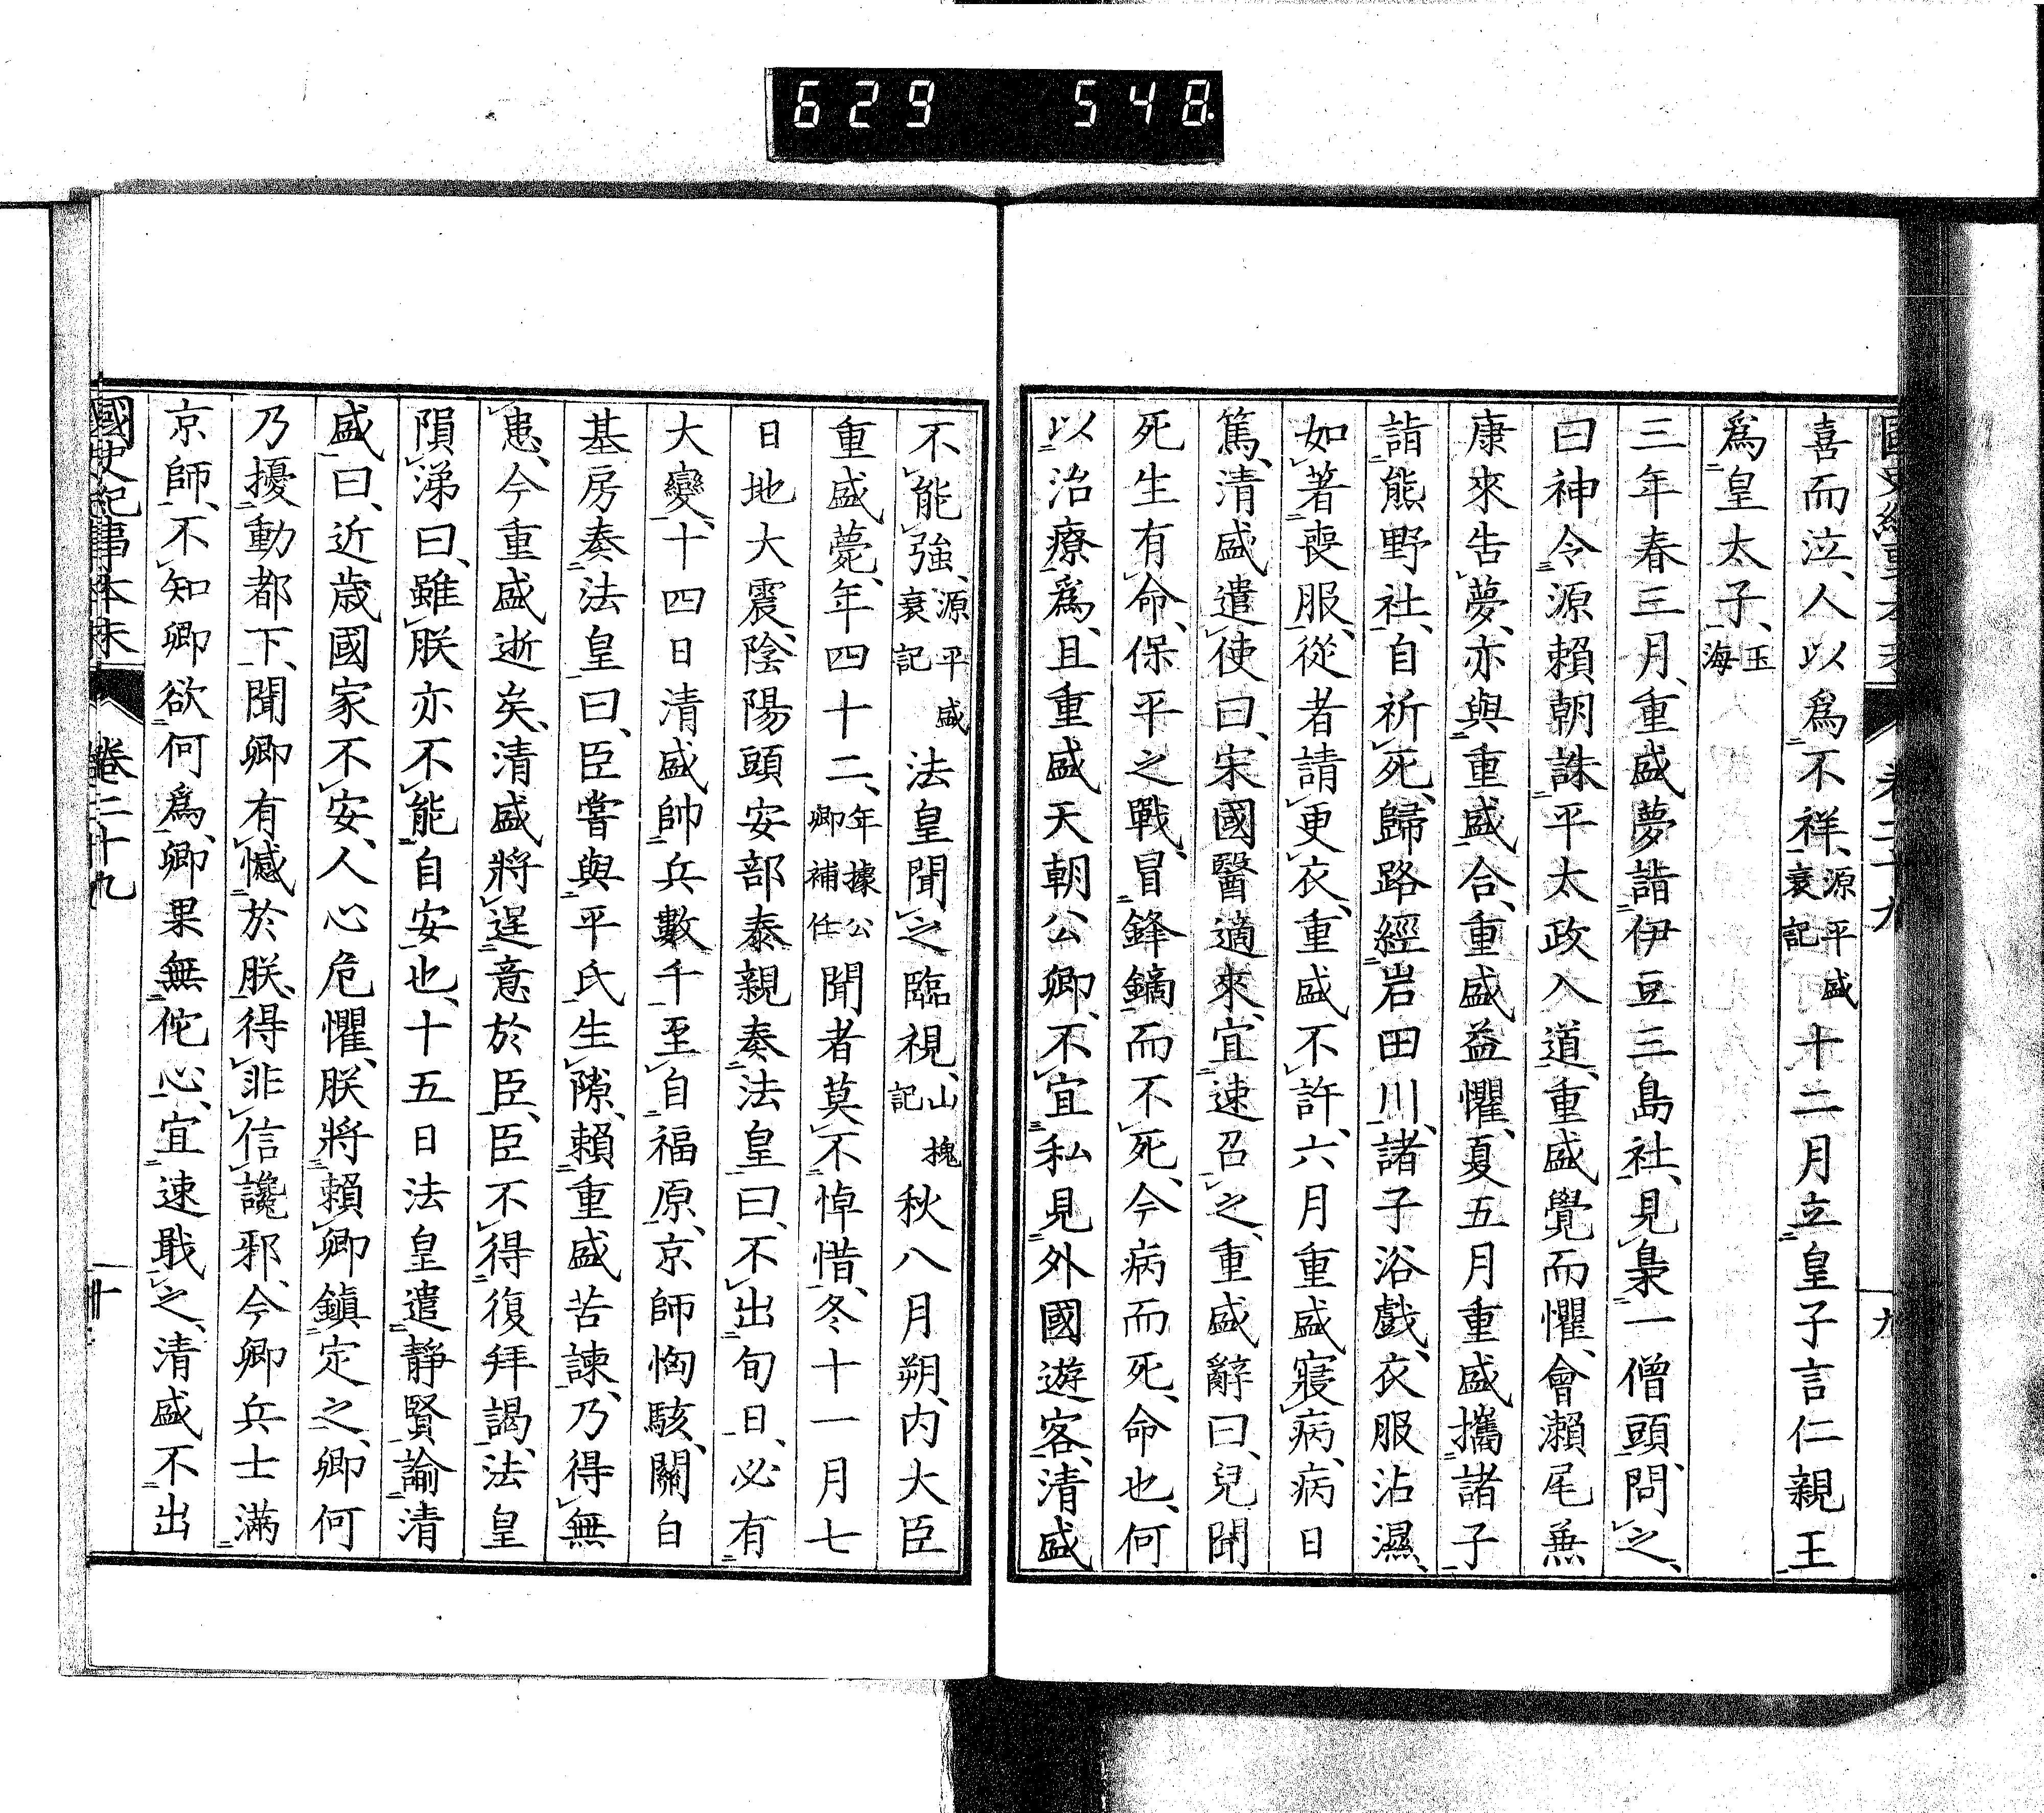 629 548
國史紀事本末 卷二十九 九
喜而泣、人以爲不祥、源平盛衰記 十二月立皇子言仁親王
爲皇太子、玉海
三年春三月、重盛夢詣伊豆三島社、見梟一僧頭、問之、
曰神令源賴朝誅平太政入道、重盛覺而懼、會瀬尾兼
康來告夢、亦與重盛合、重盛益懼、夏五月重盛攜諸子
詣熊野社、自祈死、歸路經岩田川、諸子浴戲、衣服沾濕、
如著喪服、從者請更衣、重盛不許、六月重盛寢病、病日
篤、清盛遣使曰、宋國醫適來、宜速召之、重盛辭曰、兒聞
死生有命、保平之戰、冒鋒鏑而不死、今病而死、命也、何
以治療爲、且重盛天朝公卿、不宜私見外國遊客、清盛
不能強、源平盛衰記 法皇聞之臨視、山槐記 秋八月朔、内大臣
重盛薨、年四十二、年據公卿補任 聞者莫不悼惜、冬十一月七
日地大震、陰陽頭安部泰親奏法皇曰、不出旬日、必有
大變、十四日清盛帥兵數千至自福原、京師恟駭、關白
基房奏法皇曰、臣嘗與平氏生隙、賴重盛苦諫、乃得無
患、今重盛逝矣、清盛將逞意於臣、臣不得復拜謁、法皇
隕涕曰、雖朕亦不能自安也、十五日法皇遣靜賢諭清
盛曰、近歲國家不安、人心危懼、朕將賴卿鎭定之、卿何
乃擾動都下、聞卿有憾於朕、得非信讒邪、今卿兵士滿
京師、不知卿欲何爲、卿果無佗心、宜速戢之、清盛不出
國史紀事本末 卷二十九 十